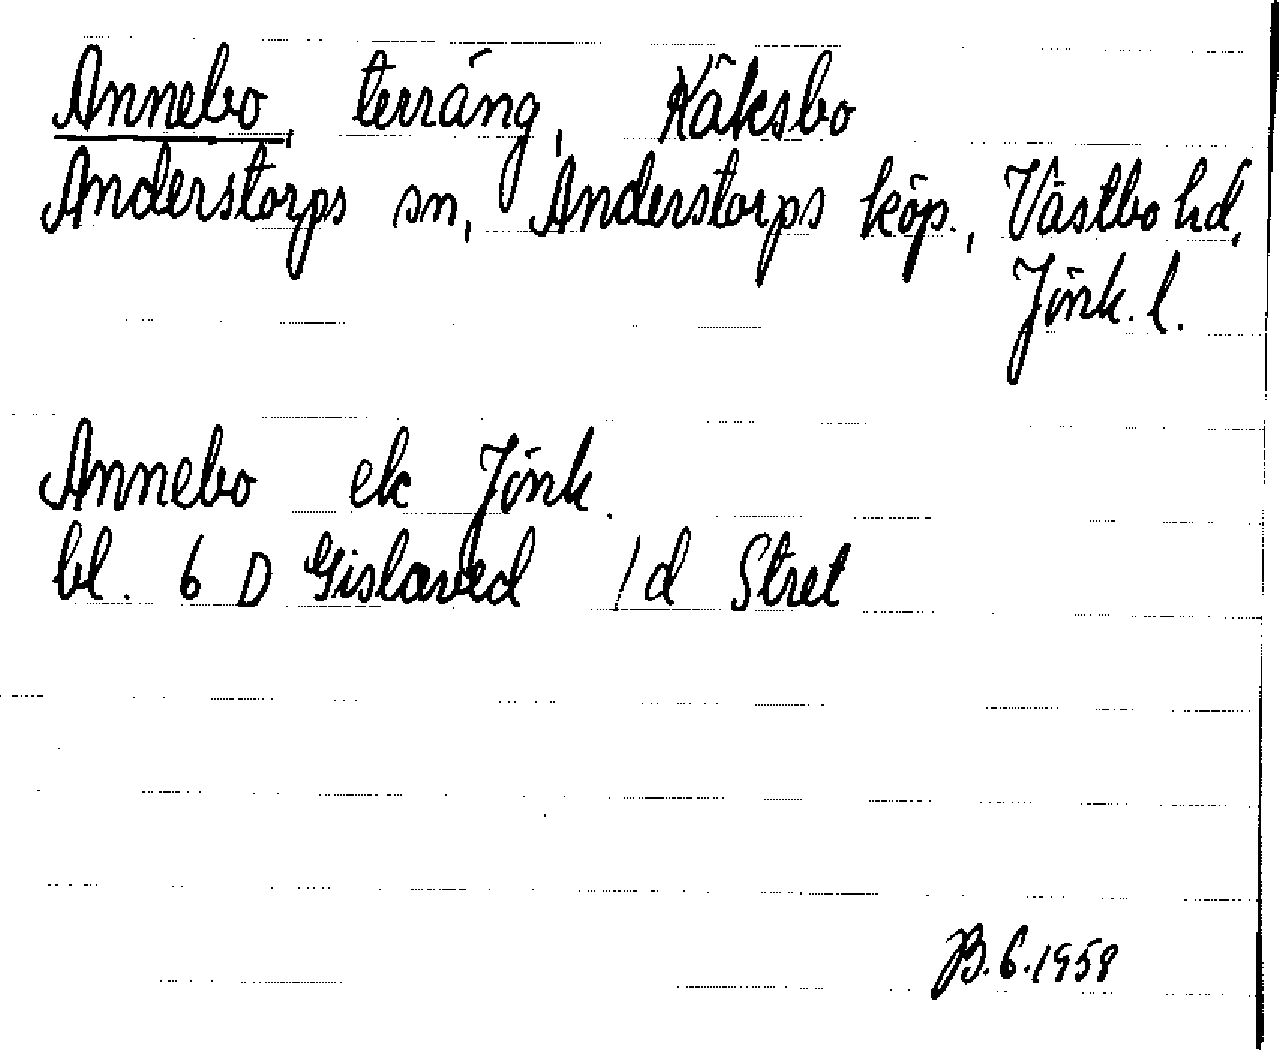 Annebo, terräng, Käksbo
Anderstorps sn, Anderstorps köp., Västbo hd,
Jönk. l.
Annebo ek Jönk.
bl. 6 D Gislaved 1d Stret
JB. 6.1958